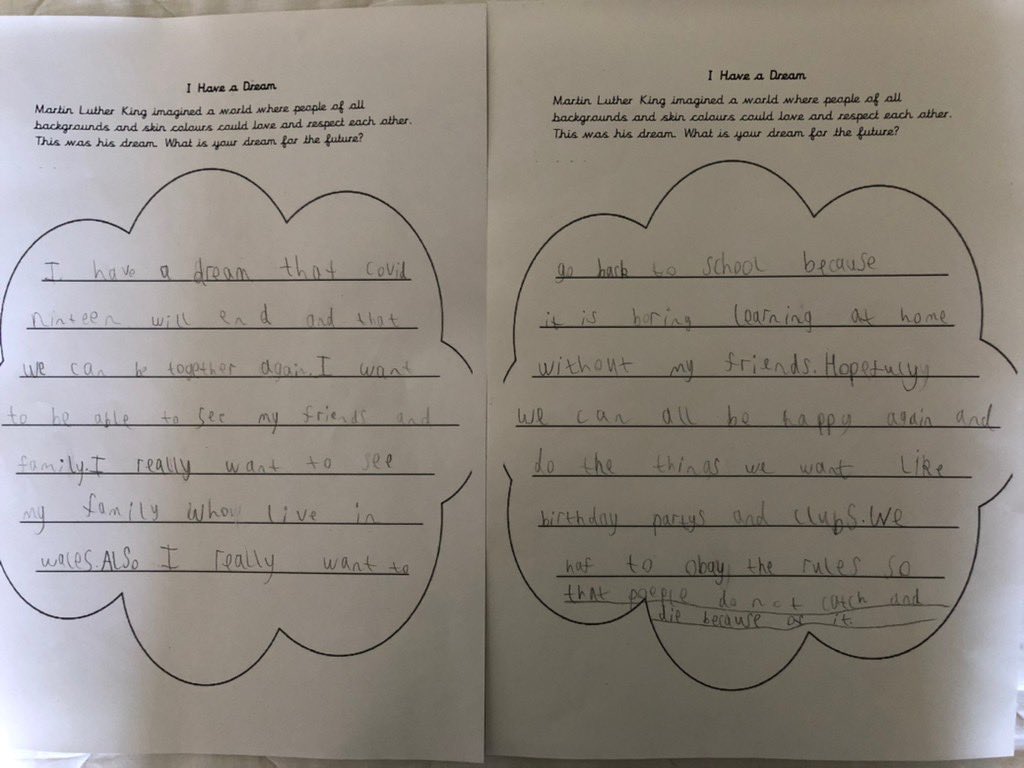 I Have a Dream
Martin Luther King imagined a world where people of all
backgrounds and skin colours could love and respect each other.
This was his dream. What is your dream for the future?
I have a dream that covid
ninteen will end and that
we can be together again. I want
to be able to see my friends and
family. I really want to see
my family whow live in
wales. ALSo I really want to
I Have a Dream
Martin Luther King imagined a world where people of all
backgrounds and skin colours could love and respect each other.
This was his dream. What is your dream for the future?
go back to school because
it is boring learning at home
without my friends. Hopefulyy
we can all be happy again and
do the things we want like
birthday partys and clubs. We
haf to obay the rules so
that poeple do not catch and
die because of it.